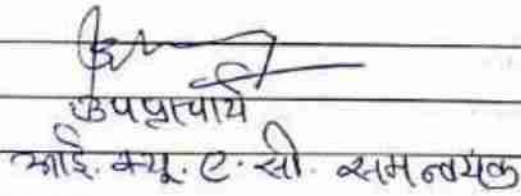 उपप्राचार्य
आई. क्यू. ए. सी. समन्वयक